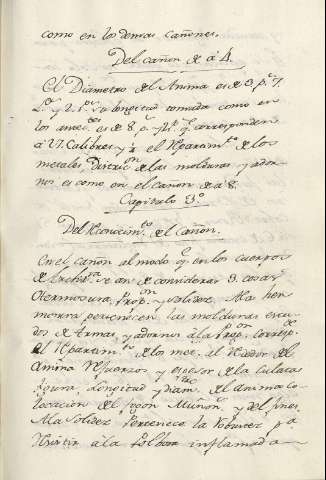 como en los demas cañones.
Del cañon de á 4.
El Diametro del Anima es de 3. p.s 7.
y su longitud tomada como en
los antec.tes es de 8. p.s y q.e corresponden
á 27. Calibres y el Repartim.to de los
metales, Distric.on de las molduras y ador-
nos es como en el cañon de á 8.
Capitulo 3.o
Del Reconocim.to del Cañon.
En el cañon al modo q.e en los cuerpos
de Archit.ra se an de considerar 3. cosas
Hermosura, Prop.on y solidez. A la her-
mosura pertenecen las molduras escu-
dos de Armas, y adornos á la Prop.on corresp.de
el Repartim.to de los met.
Anima Refuerzos y espesor de la Culata
figura, Longitud y diam.tro del anima co-
locacion del fogon Muñon.s y del
A la Solidez Pertenece la robustez p.a
Resistir á la Polbora inflamada